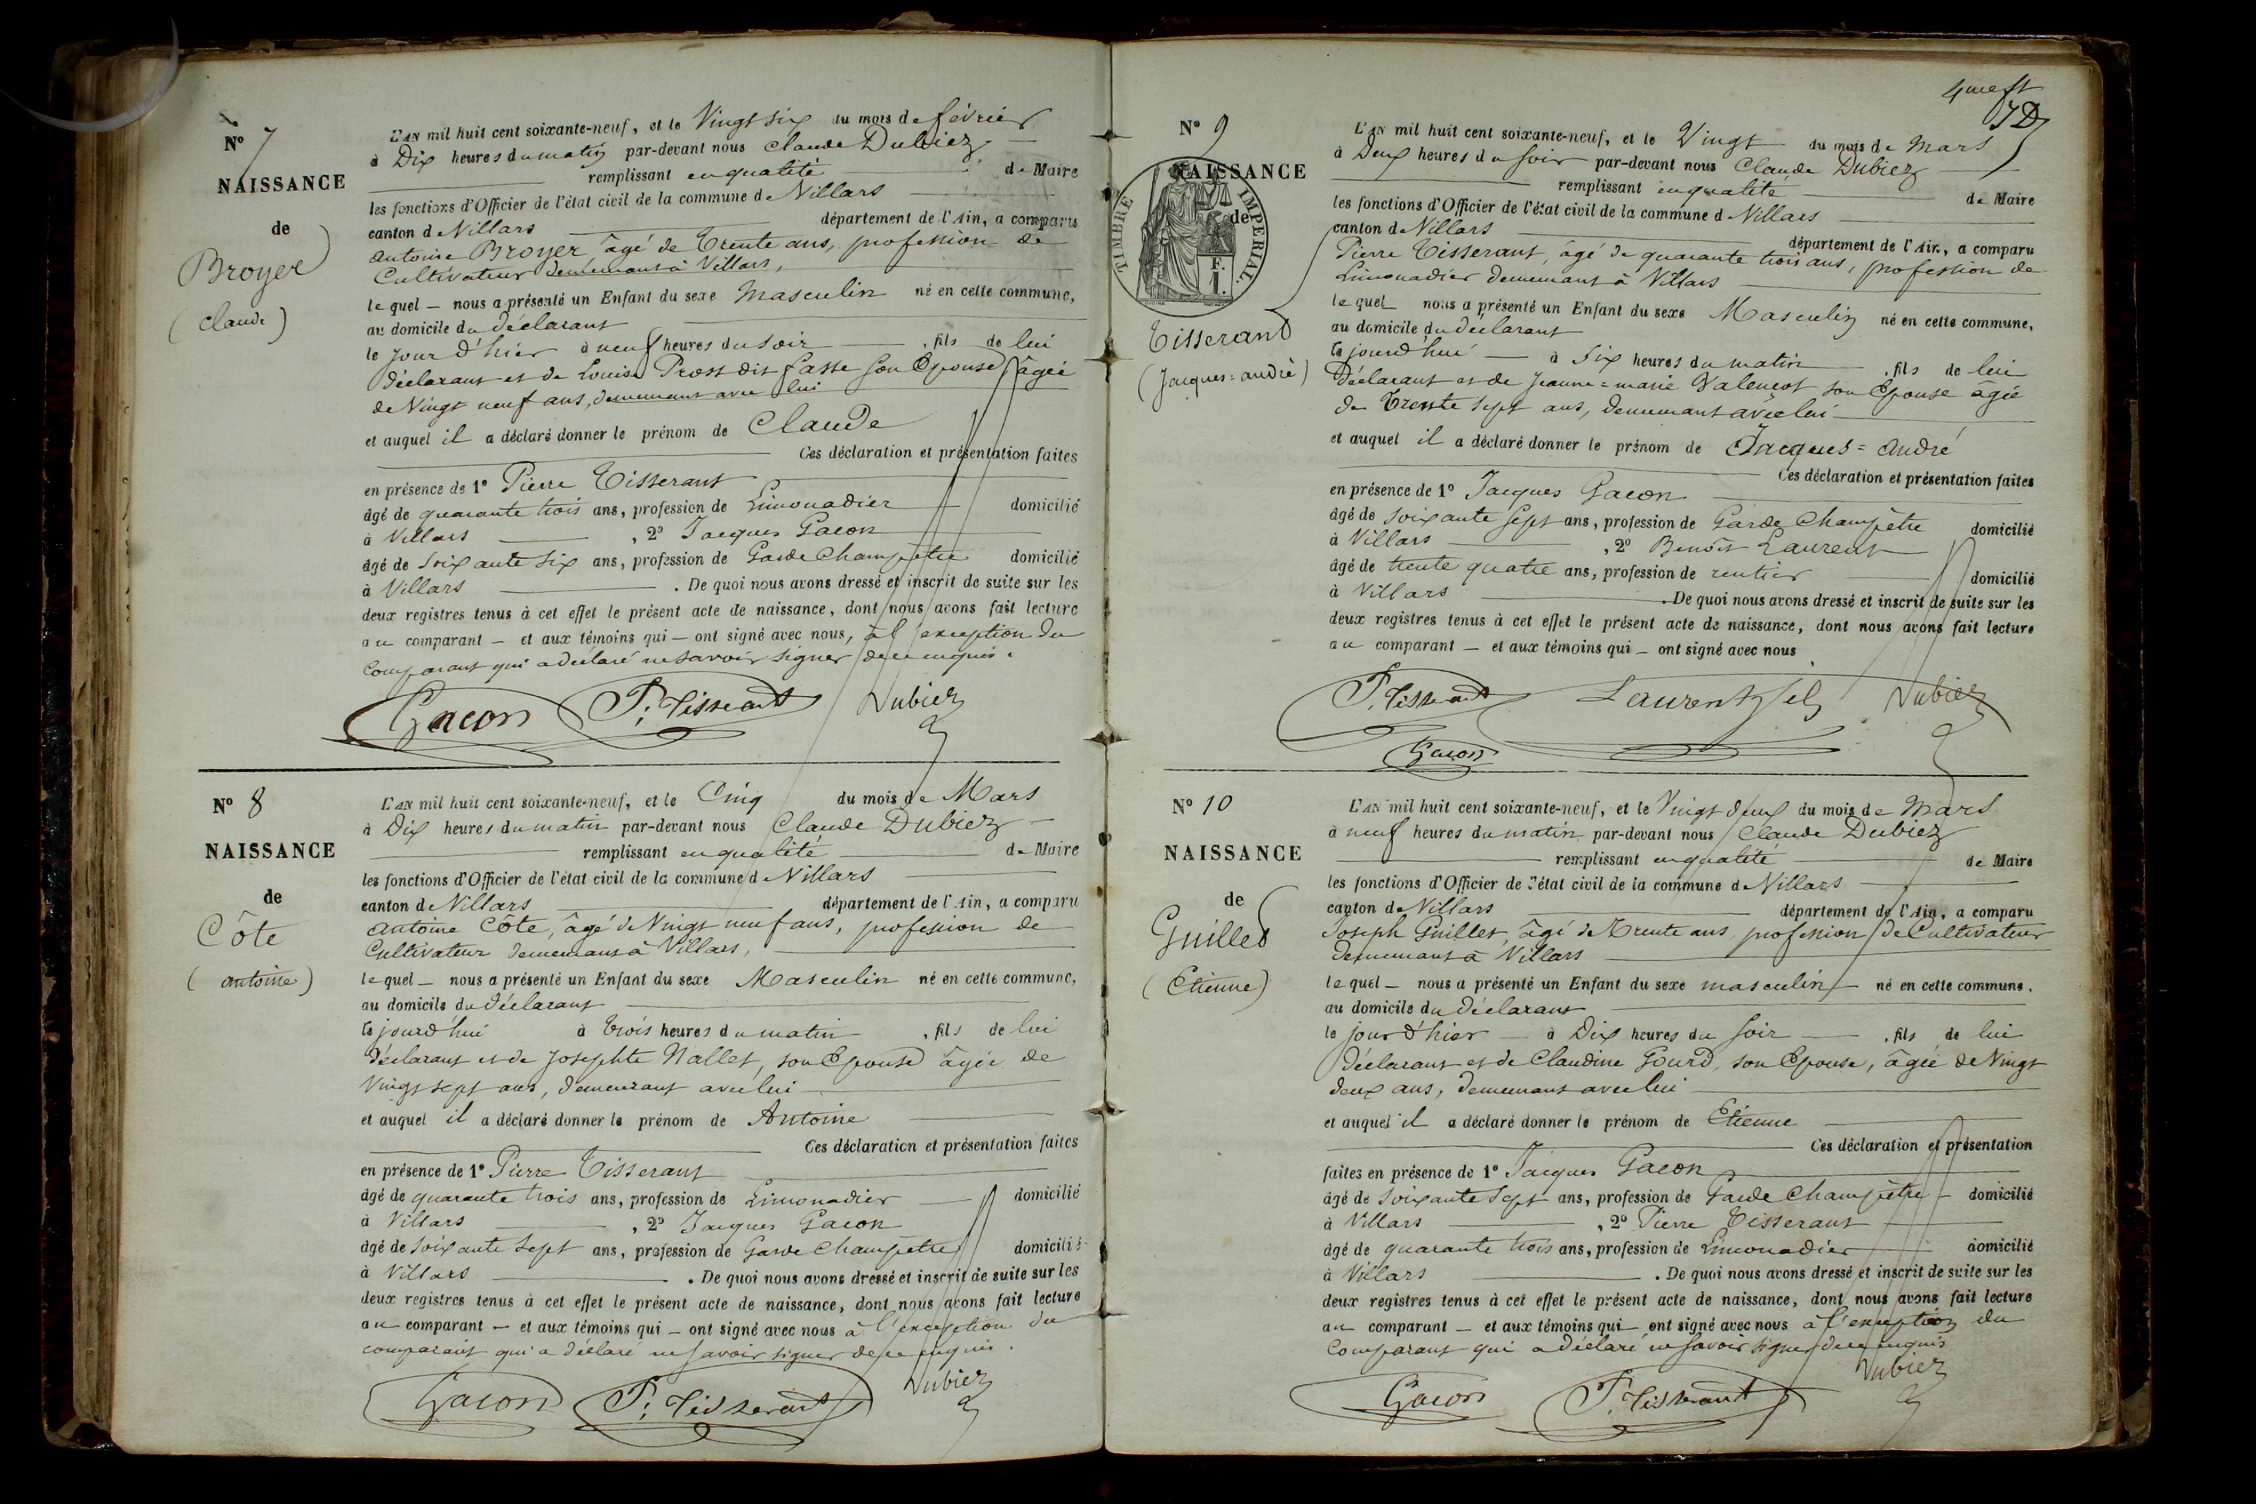 N° 7
NAISSANCE
de
Broyer
(Claude)
L'AN mil huit cent soixante-neuf, et le Vingt six du mois de février
à Dix heures du matin par-devant nous Claude Dubiez
remplissant en qualité de Maire
les fonctions d'Officier de l'état civil de la commune de Villars
canton de Villars département de l'Ain, a comparu
antoine Broyer âgé de Trente ans, profession de
Cultivateur demeurant à Villars,
le quel nous a présenté un Enfant du sexe Masculin né en cette commune,
au domicile du déclarant
le jour d'hier à neuf heures du soir, fils de lui
déclarant et de Louise Prost dit fasse son Epouse âgée
de Vingt neuf ans, demeurant avec lui
et auquel il a déclaré donner le prénom de Claude
Ces déclaration et présentation faites
en présence de 1° Pierre Tisserant
âgé de quarante trois ans, profession de Limonadier domicilié
à Villars, 2° Jacques Gacon
âgé de Soixante six ans, profession de Garde Champêtre domicilié
à Villars. De quoi nous avons dressé et inscrit de suite sur les
deux registres tenus à cet effet le présent acte de naissance, dont nous avons fait lecture
au comparant — et aux témoins qui — ont signé avec nous, à l'exception du
comparant qui a déclaré ne savoir signer de ce enquis.
Gacon P. Tisserant Dubiez
N° 8
NAISSANCE
de
Côte
(antoine)
L'AN mil huit cent soixante-neuf, et le Cinq du mois de Mars
à Dix heures du matin par-devant nous Claude Dubiez
remplissant en qualité de Maire
les fonctions d'Officier de l'état civil de la commune de Villars
canton de Villars département de l'Ain, a comparu
antoine Côte, âgé de Vingt neuf ans, profession de
Cultivateur demeurant à Villars,
le quel — nous a présenté un Enfant du sexe Masculin né en cette commune,
au domicile du déclarant
le jourd'hui à trois heures du matin, fils de lui
déclarant et de Josephte Nallet, son Epouse âgée de
Vingt sept ans, demeurant avec lui
et auquel il a déclaré donner le prénom de Antoine
Ces déclaration et présentation faites
en présence de 1° Pierre Tisserant
âgé de quarante trois ans, profession de Limonadier domicilié
à Villars, 2° Jacques Gacon
âgé de soixante sept ans, profession de Garde Champêtre domicilié
à Villars. De quoi nous avons dressé et inscrit de suite sur les
deux registres tenus à cet effet le présent acte de naissance, dont nous avons fait lecture
au comparant — et aux témoins qui — ont signé avec nous à l'exception du
comparant qui a déclaré ne savoir signer de ce enquis.
Gacon P. Tisserant Dubiez
N° 9
NAISSANCE
de
TIMBRE IMPERIAL.
F.
1.
Tisserand
(Jacques=andré)
L'AN mil huit cent soixante-neuf, et le Vingt du mois de Mars
à Deux heures du soir par-devant nous Claude Dubiez
remplissant en qualité de Maire
les fonctions d'Officier de l'état civil de la commune d Villars
canton de Villars département de l'Ain, a comparu
Pierre Tisserant, âgé de quarante trois ans, profession de
Limonadier demeurant à Villars
le quel nous a présenté un Enfant du sexe Masculin né en cette commune,
au domicile du déclarant
le jourd'hui — à Six heures du matin, fils de lui
Déclarant et de Jeanne=marie Valençot son Epouse âgée
de Trente sept ans, demeurant avec lui
et auquel il a déclaré donner le prénom de Jacques=andré
Ces déclaration et présentation faites
en présence de 1° Jacques Gacon
âgé de soixante sept ans, profession de Garde Champêtre domicilié
à Villars, 2° Benoît Laurent
âgé de trente quatre ans, profession de rentier domicilié
à Villars. De quoi nous avons dressé et inscrit de suite sur les
deux registres tenus à cet effet le présent acte de naissance, dont nous avons fait lecture
au comparant — et aux témoins qui — ont signé avec nous
P. Tisserant Laurent fils Dubiez
Gacon
N° 10
NAISSANCE
de
Guillet
(Etienne)
L'AN mil huit cent soixante-neuf, et le Vingt deux du mois de Mars
à neuf heures du matin par-devant nous Claude Dubiez
remplissant en qualité de Maire
les fonctions d'Officier de l'état civil de la commune d Villars
canton de Villars département de l'Ain, a comparu
Joseph Guillet, âgé de Trente ans, profession de Cultivateur
demeurant à Villars
le quel — nous a présenté un Enfant du sexe masculin né en cette commune,
au domicile du déclarant
le jour d'hier — à Dix heures du soir, fils de lui
Déclarant et de Claudine Gourd, son Epouse, âgée de Vingt
deux ans, demeurant avec lui
et auquel il a déclaré donner le prénom de Etienne
Ces déclaration et présentation
faites en présence de 1° Jacques Gacon
âgé de soixante sept ans, profession de Garde Champêtre — domicilié
à Villars, 2° Pierre Tisserant
âgé de quarante trois ans, profession de Limonadier domicilié
à Villars. De quoi nous avons dressé et inscrit de suite sur les
deux registres tenus à cet effet le présent acte de naissance, dont nous avons fait lecture
au comparant — et aux témoins qui — ont signé avec nous à l'exception du
comparant qui a déclaré ne savoir signer de ce enquis
Gacon P. Tisserant Dubiez